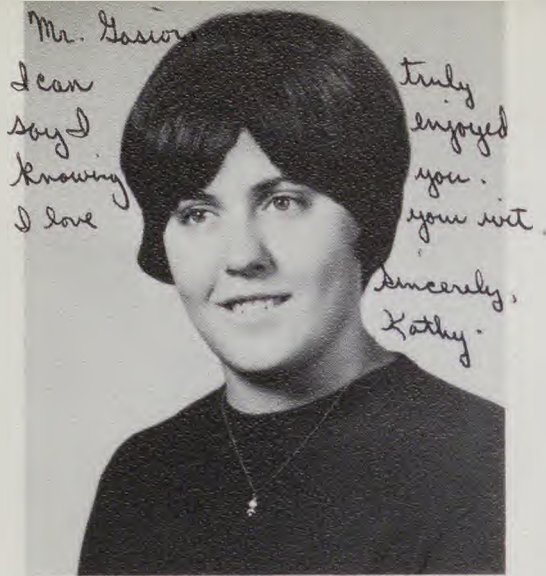 Mr. Gasior,
I can truly
say I enjoyed
knowing you.
I love your wit.
Sincerely,
Kathy.